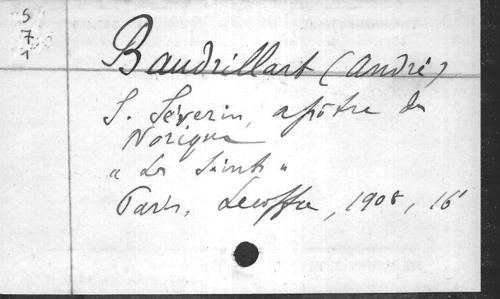 5
7
1
Baudrillart (André)
S. Séverin, apôtre du
Norique
"Les Saints"
Paris, Lecoffre, 1908, 16°